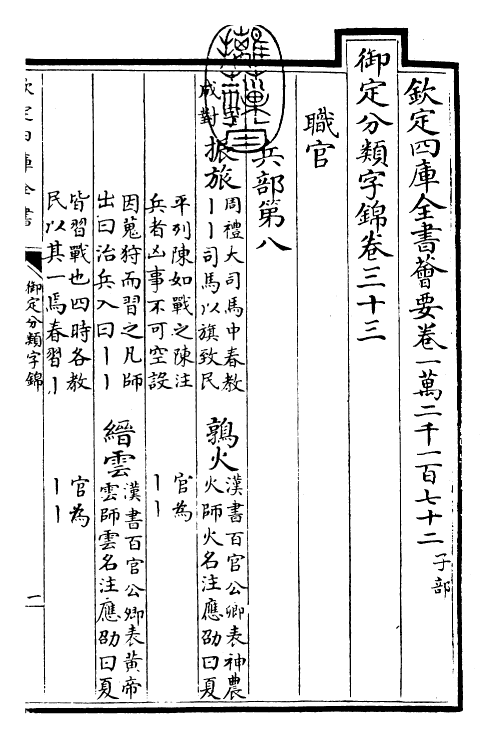 欽定四庫全書薈要卷一萬二千一百七十二 子部
御定分類字錦卷三十三
職官
兵部第八
成對
振旅 周禮大司馬中春教
丨丨司馬以旗致民
平列陳如戰之陳注
兵者凶事不可空設
因蒐狩而習之凡師
出曰治兵入曰丨丨
皆習戰也四時各教
民以其一焉春習丨
鶉火 漢書百官公卿表神農
火師火名注應劭曰夏
官為
丨丨
縉雲 漢書百官公卿表黃帝
雲師雲名注應劭曰夏
官為
丨丨
欽定四庫全書
御定分類字錦
一